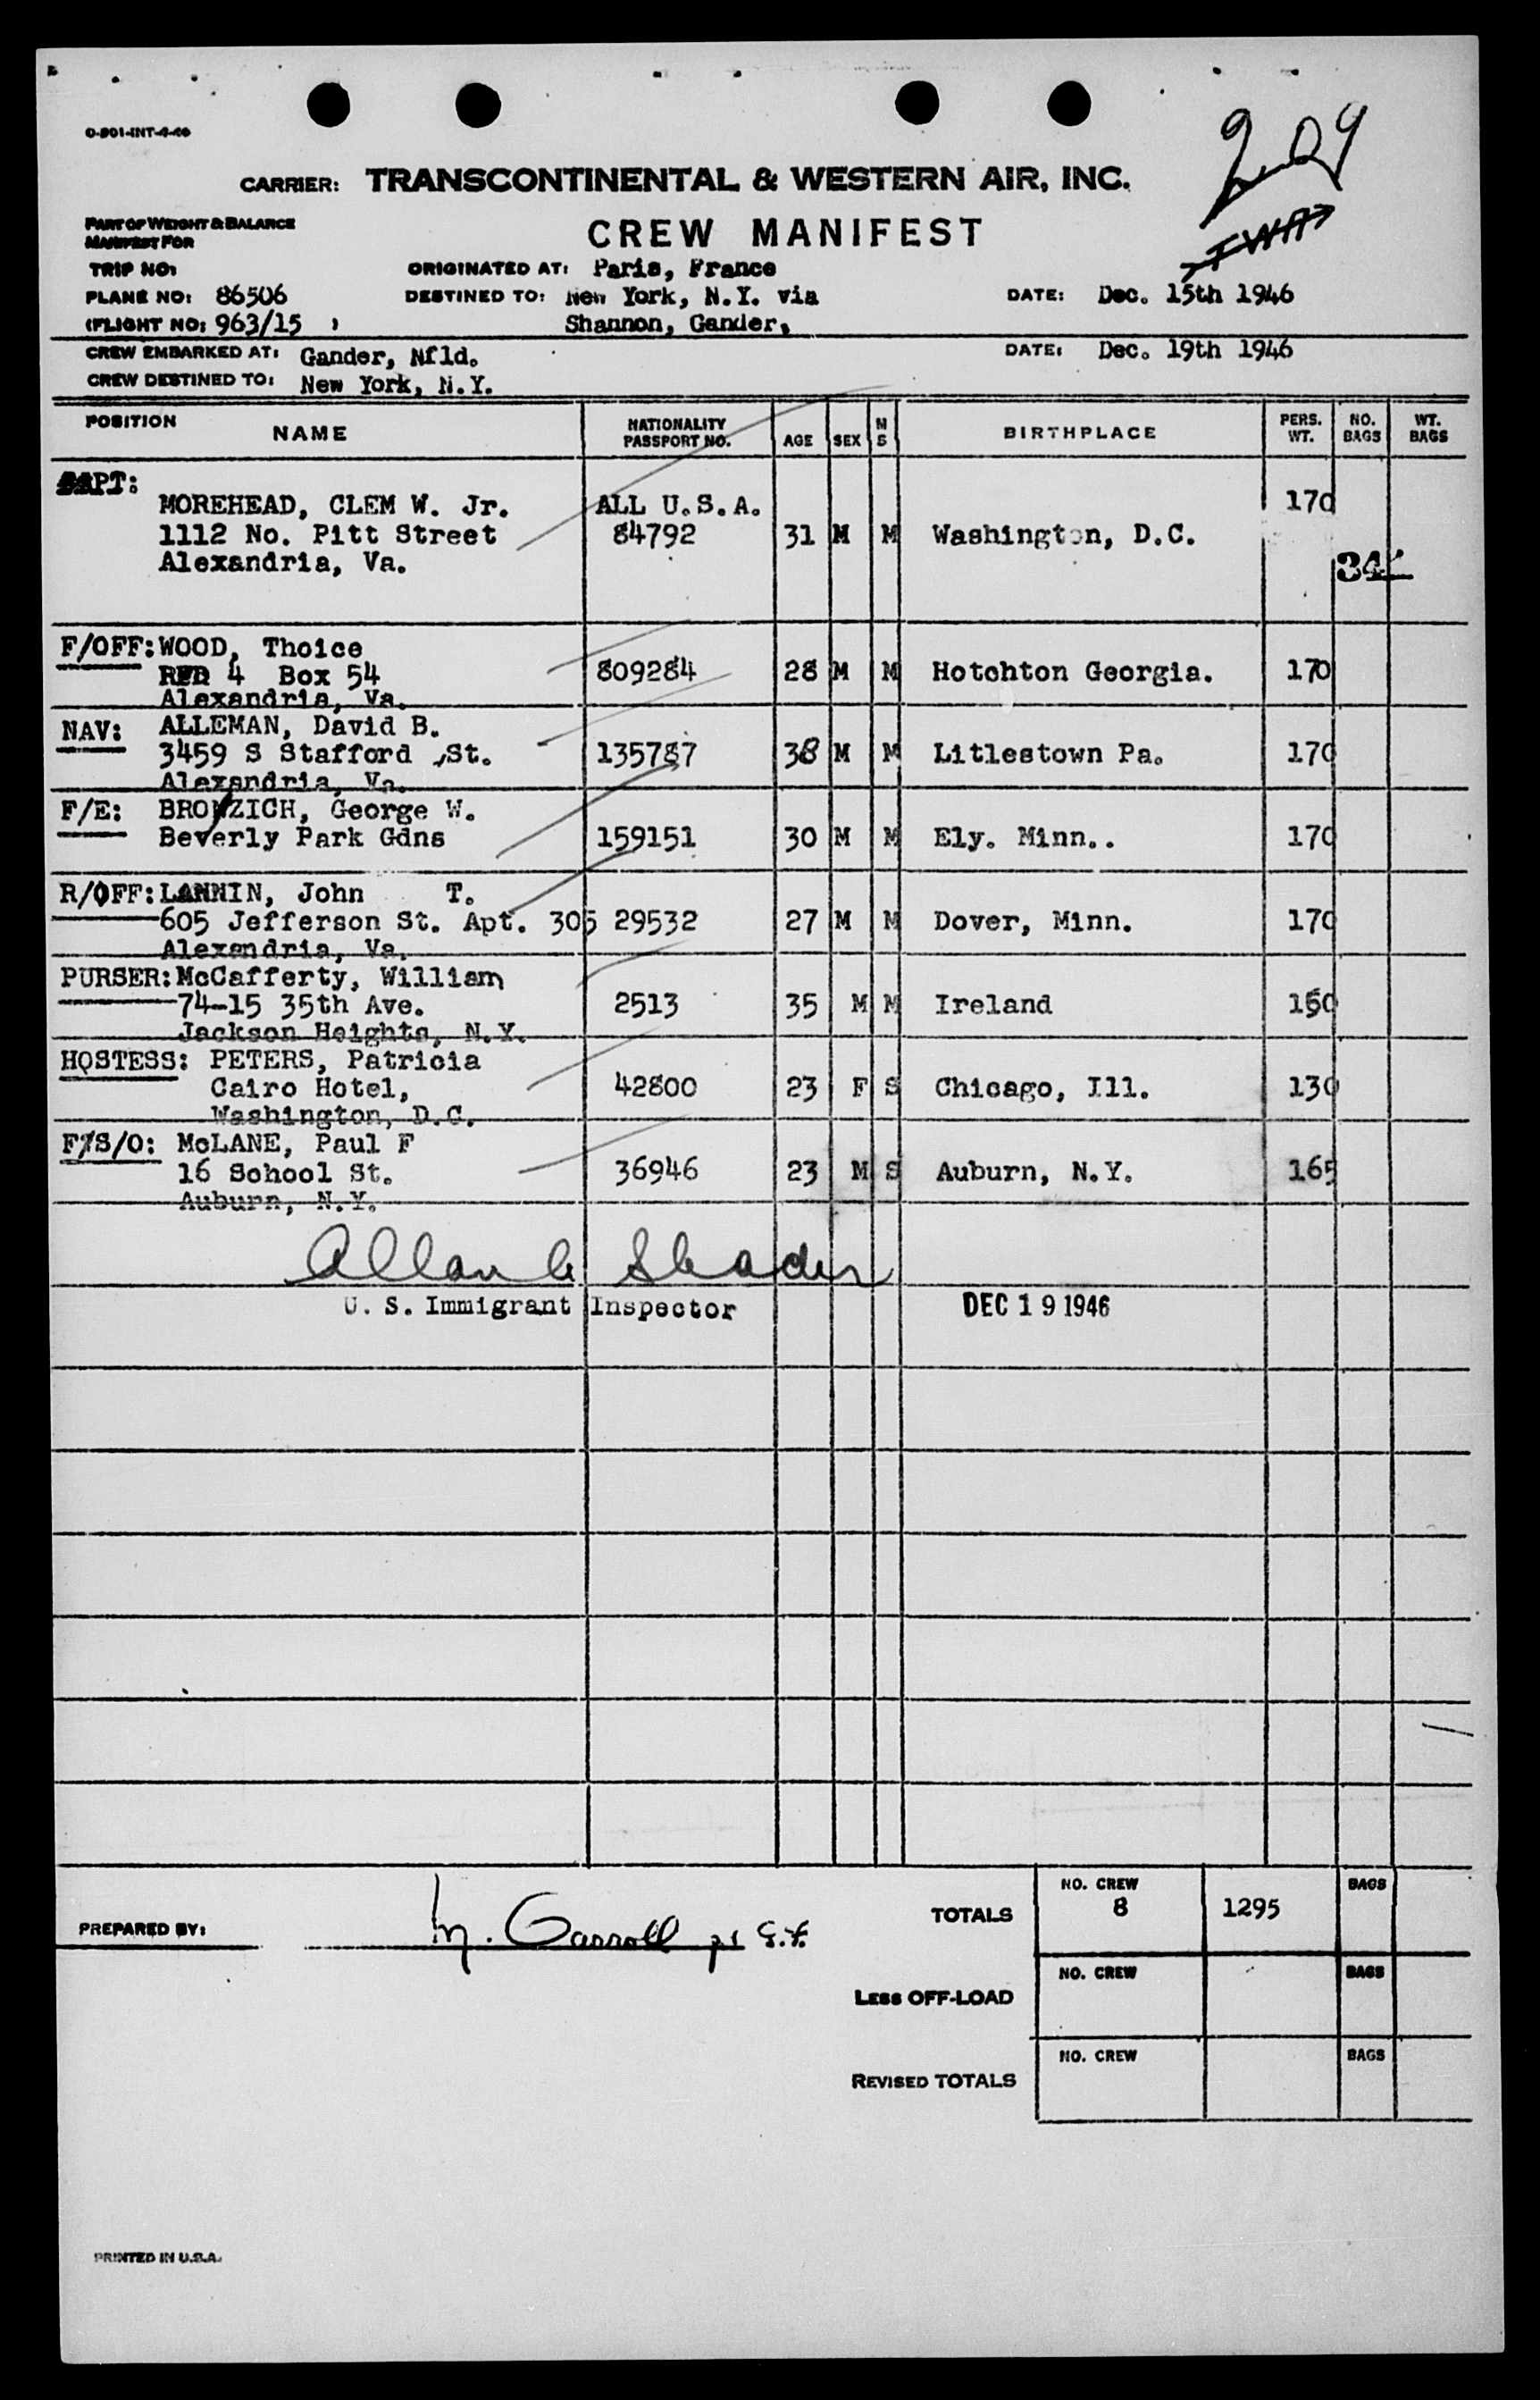 O-801-INT-4-46
209
CARRIER: TRANSCONTINENTAL & WESTERN AIR, INC.
PART OF WEIGHT & BALANCE
MANIFEST FOR
CREW MANIFEST
TWA
TRIP NO:
ORIGINATED AT: Paris, France
PLANE NO: 86506
DESTINED TO: New York, N.Y. via
DATE: Dec. 15th 1946
(FLIGHT NO: 963/15 )
Shannon, Gander,
CREW EMBARKED AT: Gander, Nfld.
DATE: Dec. 19th 1946
CREW DESTINED TO: New York, N.Y.
POSITION NAME NATIONALITY PASSPORT NO. AGE SEX M S BIRTHPLACE PERS. WT. NO. BAGS WT. BAGS
CAPT:
MOREHEAD, CLEM W. Jr. ALL U.S.A. 170
1112 No. Pitt Street 84792 31 M M Washington, D.C.
Alexandria, Va. 34
F/OFF: WOOD, Thoice
RFD 4 Box 54 809284 28 M M Hotchton Georgia. 170
Alexandria, Va.
NAV: ALLEMAN, David B.
3459 S Stafford St. 135787 38 M M Litlestown Pa. 170
Alexandria, Va.
F/E: BRONZICH, George W.
Beverly Park Gdns 159151 30 M M Ely. Minn.. 170
R/OFF: LANNIN, John T.
605 Jefferson St. Apt. 305 29532 27 M M Dover, Minn. 170
Alexandria, Va.
PURSER: McCafferty, William
74-15 35th Ave. 2513 35 M M Ireland 150
Jackson Heights, N.Y.
HOSTESS: PETERS, Patricia
Cairo Hotel, 42800 23 F S Chicago, Ill. 130
Washington, D.C.
F/S/O: McLANE, Paul F
16 School St. 36946 23 M S Auburn, N.Y. 165
Auburn, N.Y.
Allan Shader
U. S. Immigrant Inspector DEC 19 1946
NO. CREW BAGS
TOTALS 8 1295
PREPARED BY: M. Carroll
NO. CREW BAGS
LESS OFF-LOAD
NO. CREW BAGS
REVISED TOTALS
PRINTED IN U.S.A.